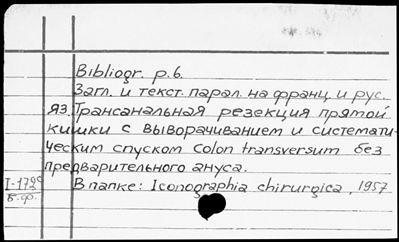 Bibliogr. p. 6.
Загл. и текст. парал. на франц. и рус.
яз. Трансанальная резекция прямой
кишки с выворачиванием и системати-
ческим спуском Colon transversum без
предварительного ануса.
I-172c В папке: Iconographia chirurgica, 1957
б.ф.